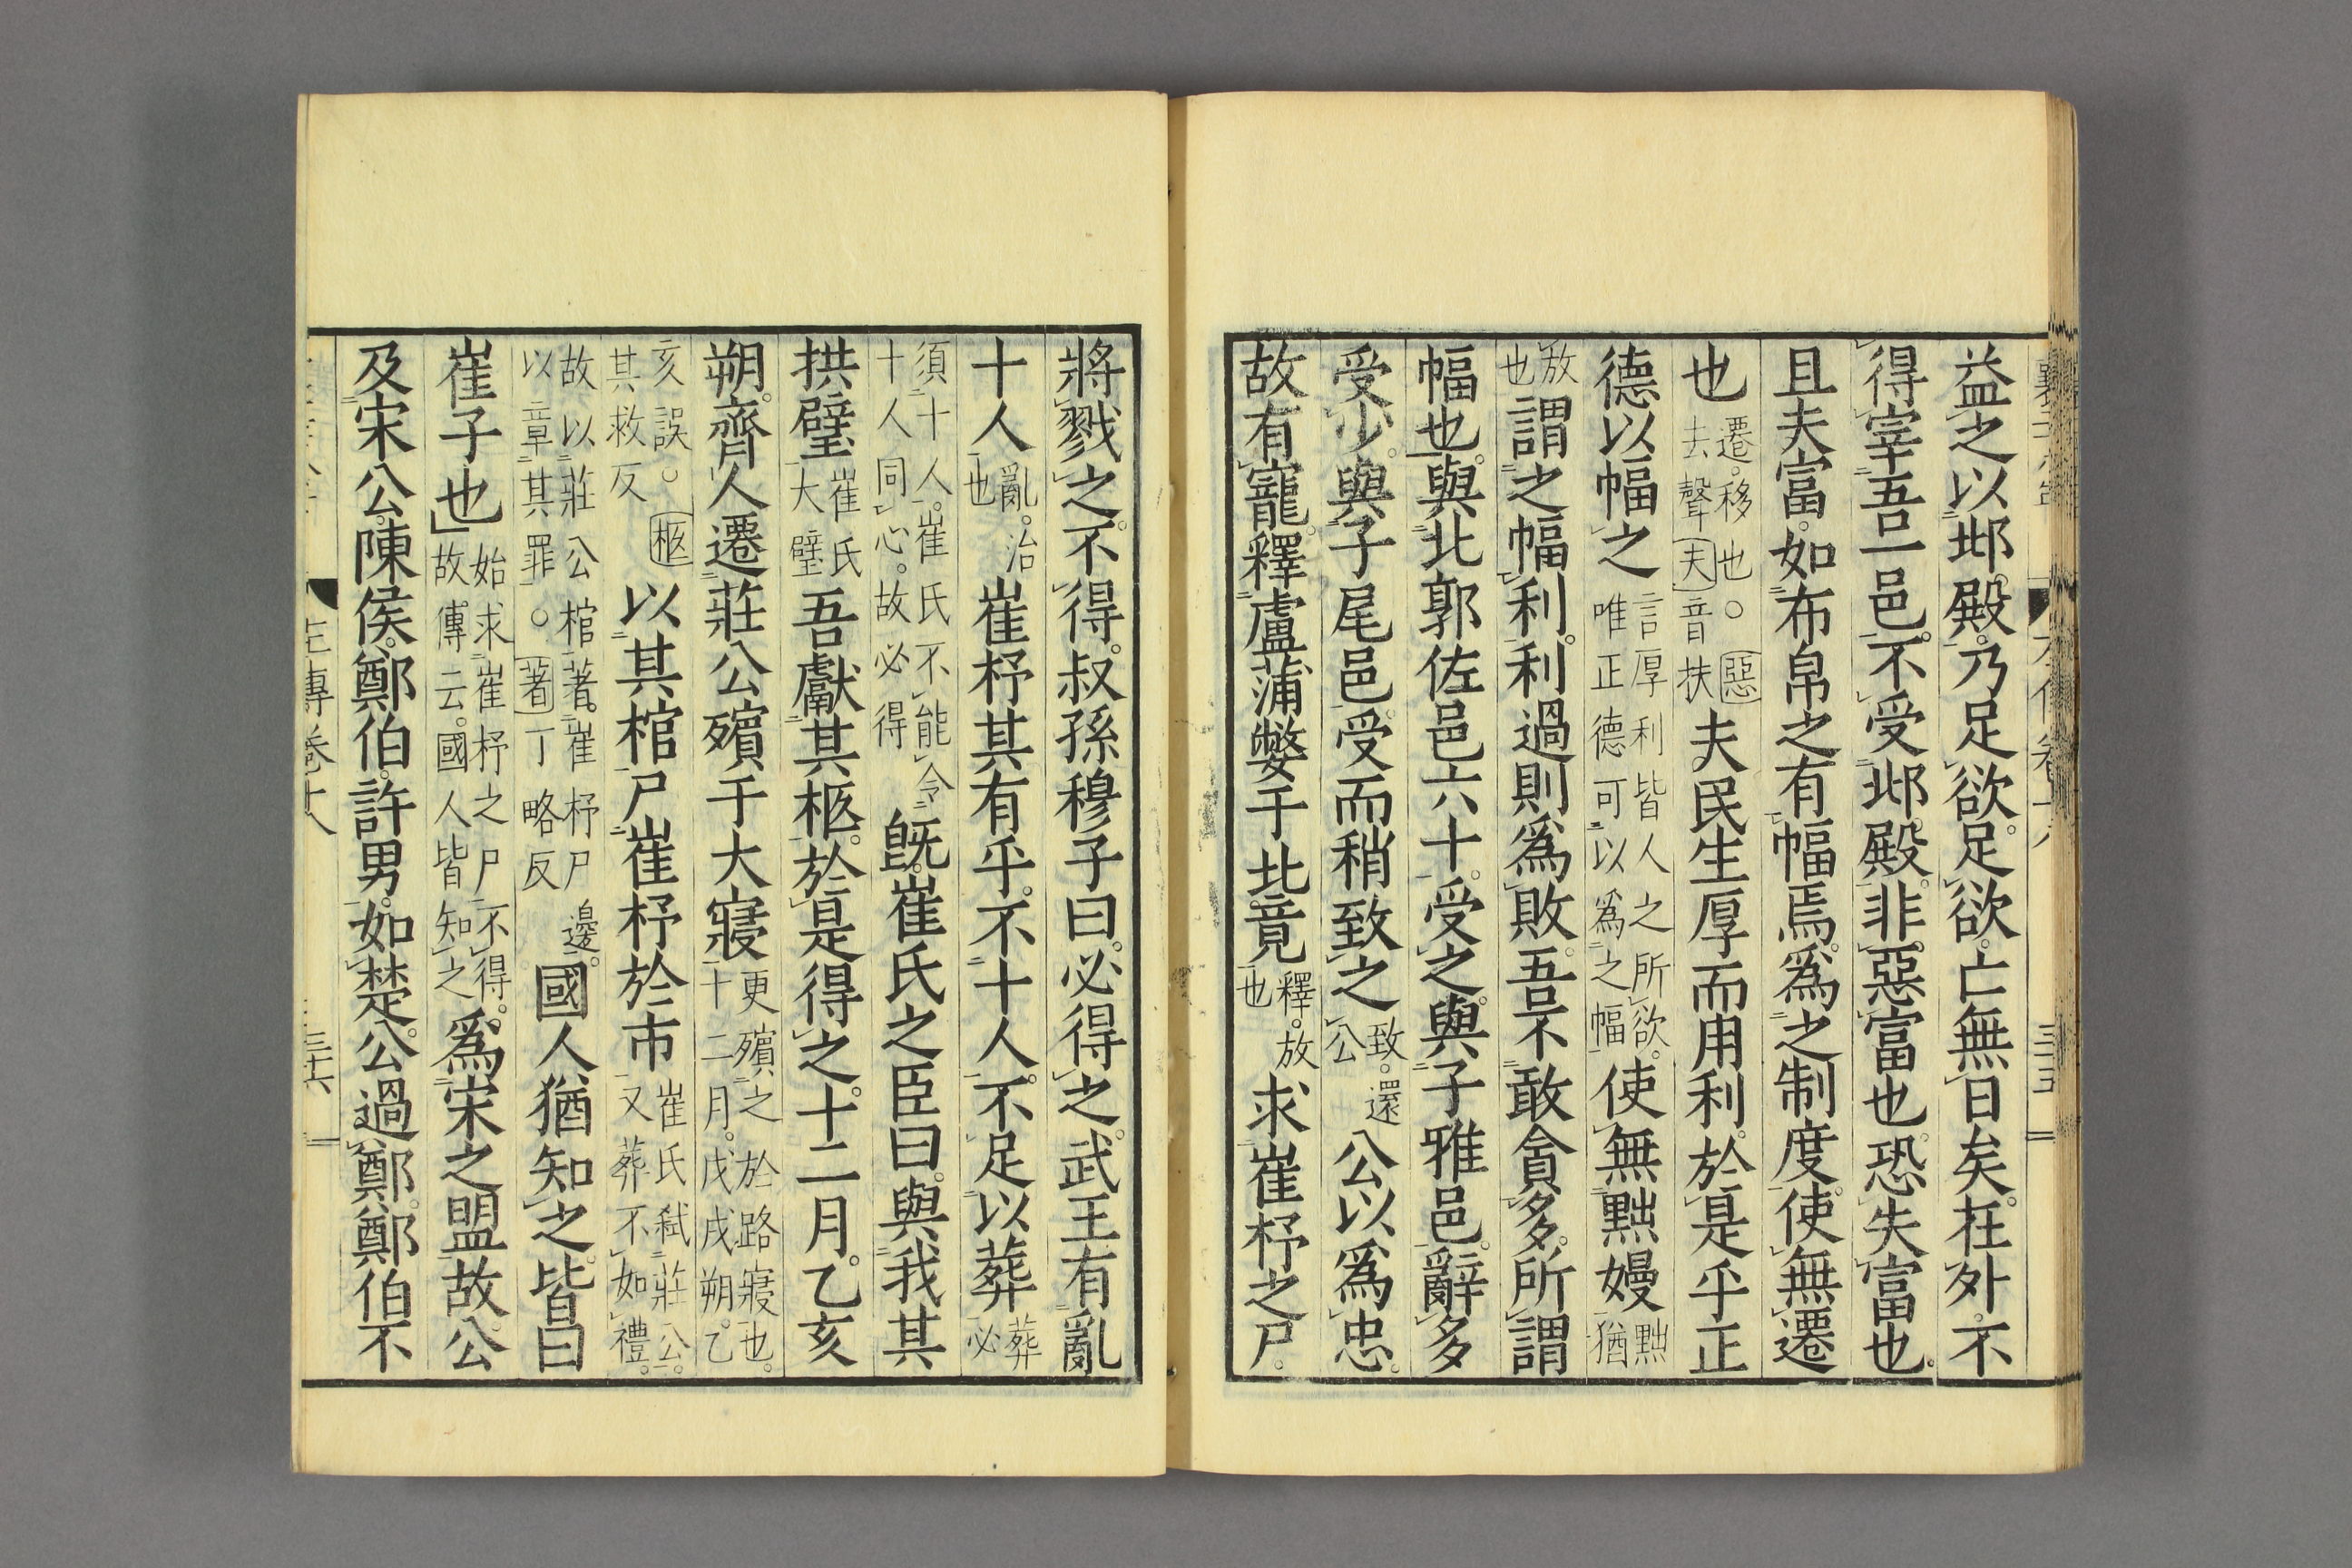 益之以邶殿。乃足欲。足欲。亡無日矣。在外。不
得宰吾一邑。不受邶殿。非惡富也。恐失富也。
且夫富。如布帛之有幅焉。爲之制度。使無遷
也遷。移也。○惡去聲夫音扶夫民生厚而用利。於是乎正
德以幅之言厚利皆人之所欲。唯正德可以爲之幅使無黜嫚黜猶
放也謂之幅利。利過則爲敗。吾不敢貪多。所謂
幅也。與北郭佐邑六十。受之。與子雅邑。辭多
受少。與子尾邑。受而稍致之致。還公公以爲忠。
故有寵。釋盧蒲嫳于北竟釋。放也求崔杼之尸。
將戮之。不得。叔孫穆子曰。必得之。武王有亂
十人亂。治也崔杼其有乎。不十人。不足以葬葬必
須十人。崔氏不能令十人同心。故必得既。崔氏之臣曰。與我其
拱璧崔氏大璧吾獻其柩。於是得之。十二月。乙亥
朔。齊人遷莊公殯于大寢更殯之於路寢也。十二月。戊戌朔。乙
亥誤。○柩其救反以其棺尸崔杼於市崔氏弑莊公。又葬不如禮。
故以莊公棺著。崔杼尸邊。以章其罪。○著丁略反國人猶知之。皆曰
崔子也始求崔杼之尸不得。故傳云。國人皆知之爲宋之盟故。公
及宋公。陳侯。鄭伯。許男。如楚。公過鄭。鄭伯不
左傳卷十八
三十六